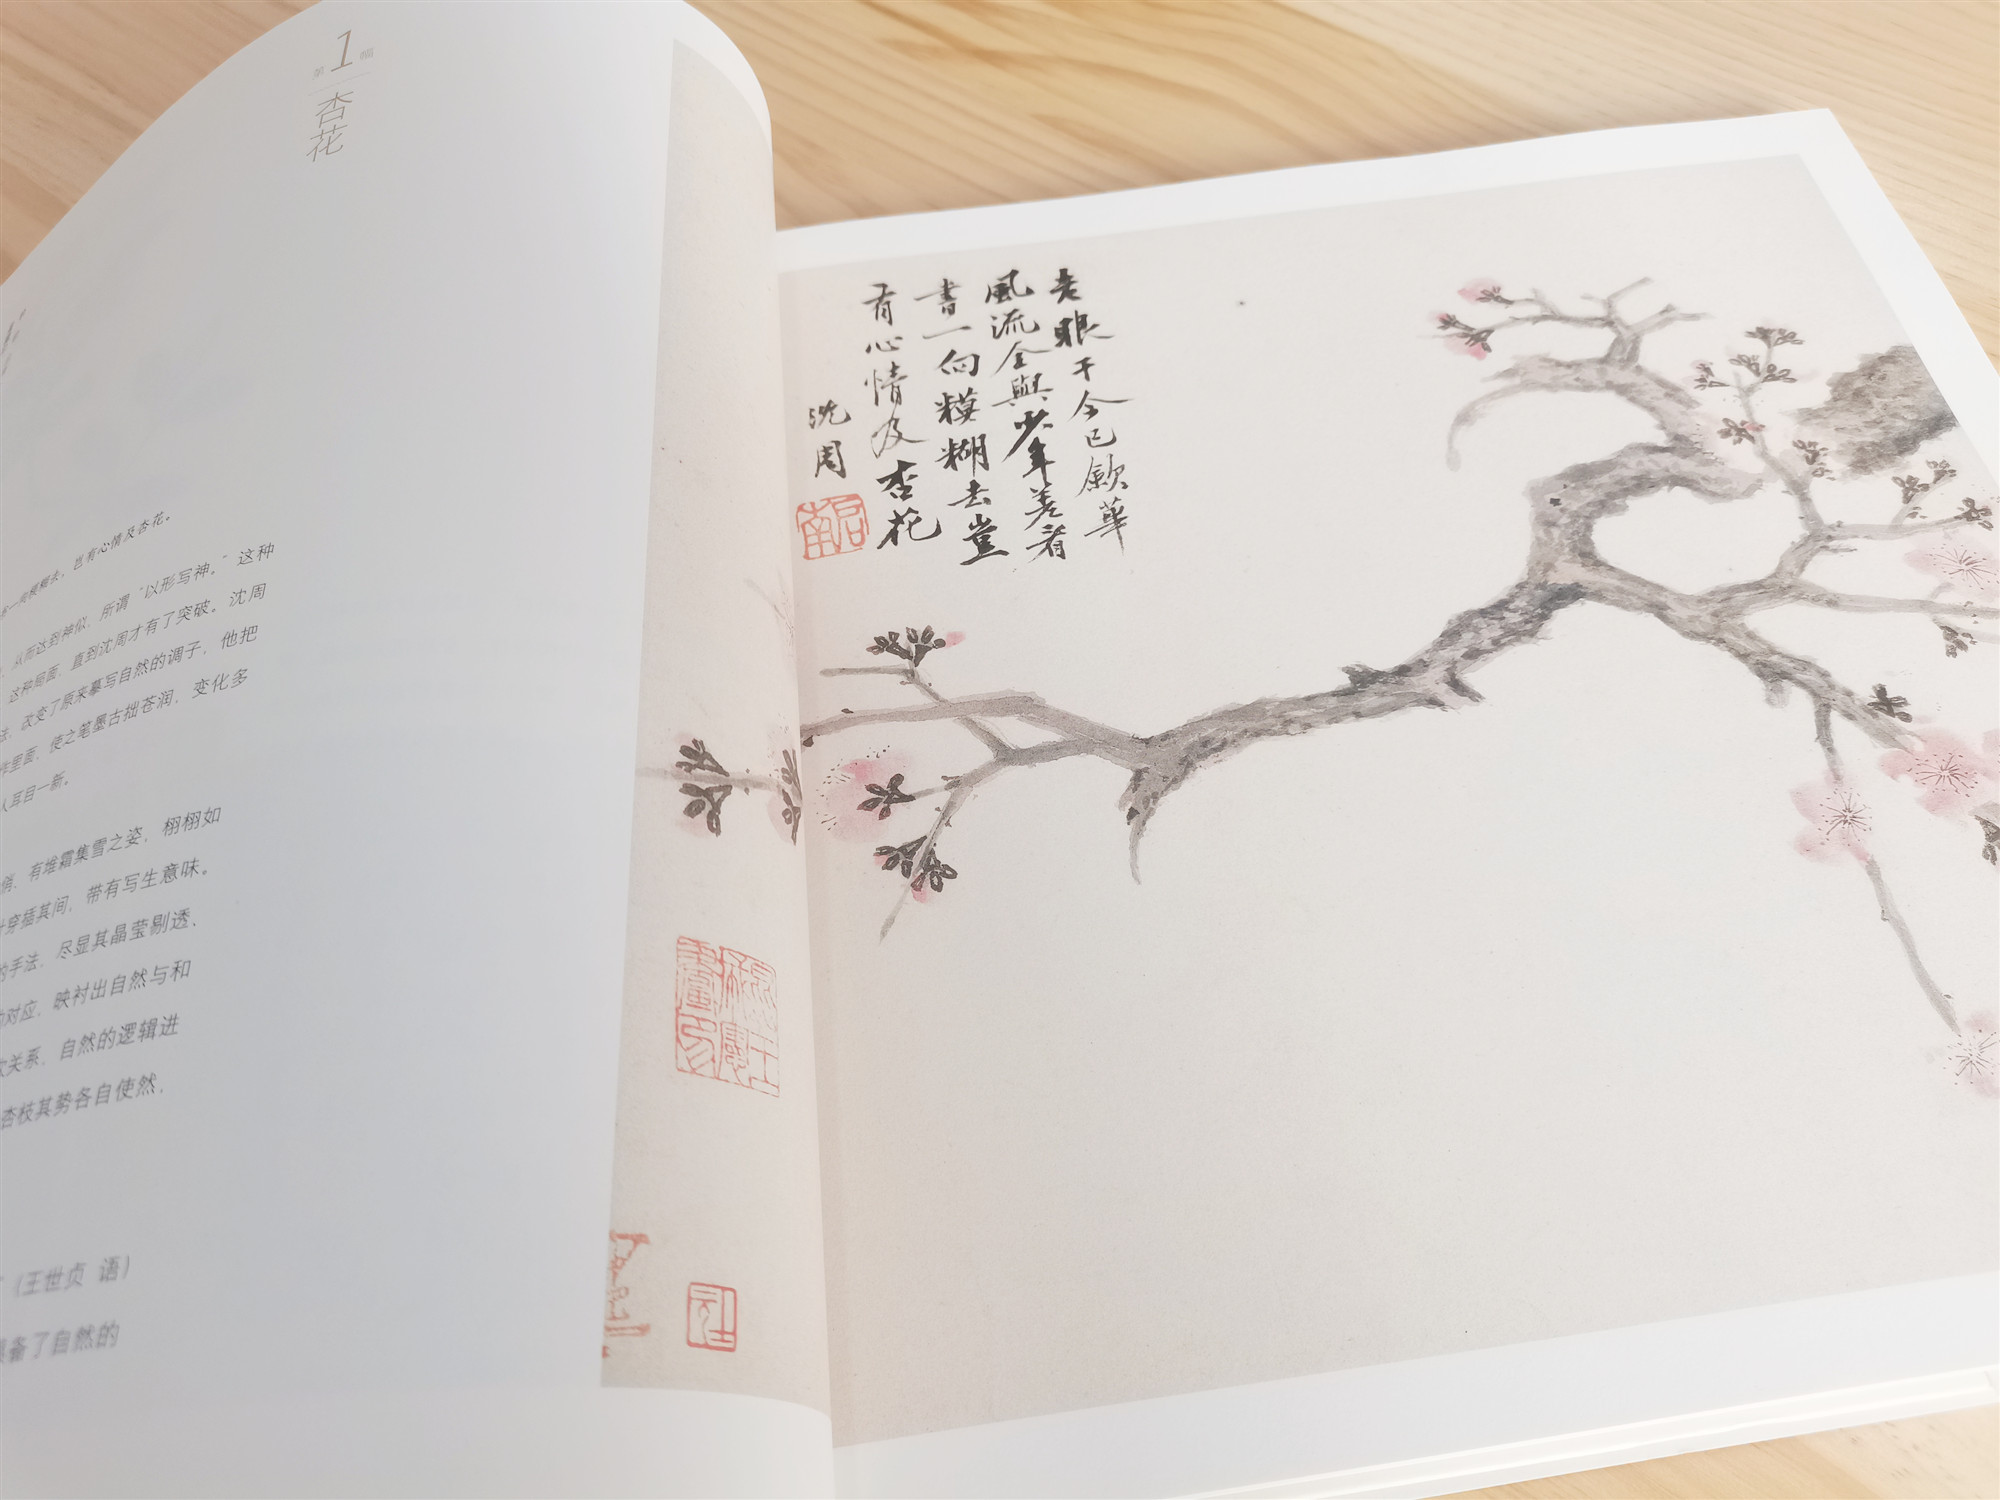 第1幅
杏花
一向模糊去，岂有心情及杏花。
从而达到神似，所谓“以形写神。”这种
这种局面，直到沈周才有了突破。沈周
法，改变了原来摹写自然的调子，他把
作里面，使之笔墨古拙苍润，变化多
人耳目一新。
俏，有堆霜集雪之姿，栩栩如
穿插其间，带有写生意味。
的手法，尽显其晶莹剔透，
对应，映衬出自然与和
次关系，自然的逻辑进
杏枝其势各自使然，
（王世贞 语）
具备了自然的
老眼于今已歛華
風流全與少年差看
書一向糢糊去豈
有心情及杏花
沈周
啟南